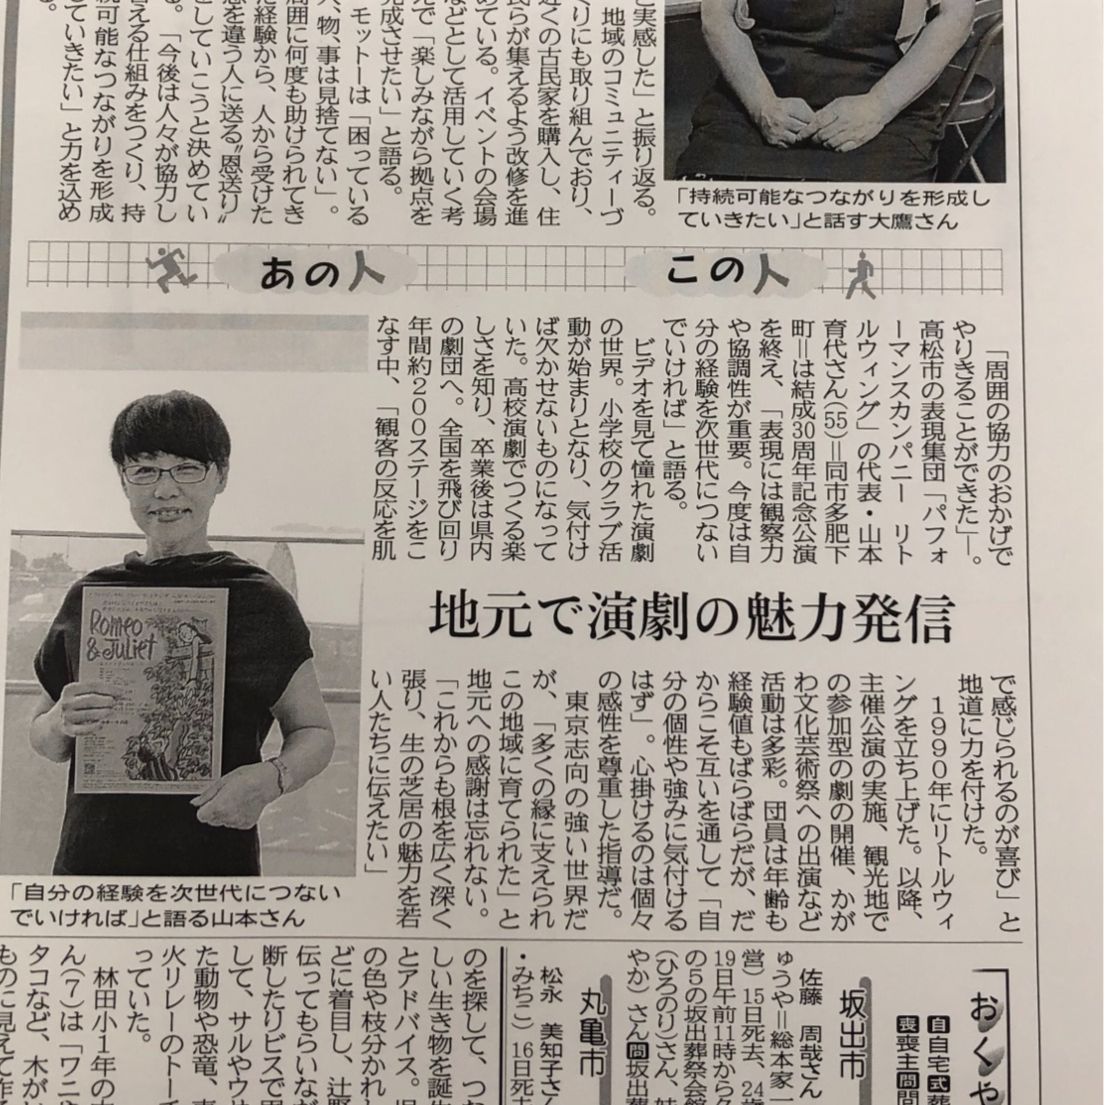 と実感した」と振り返る。
地域のコミュニティーづ
くりにも取り組んでおり、
近くの古民家を購入し、住
民らが集えるよう改修を進
めている。イベントの会場
などとして活用していく考
えで「楽しみながら拠点を
完成させたい」と語る。
モットーは「困っている
人、物、事は見捨てない」。
周囲に何度も助けられてき
た経験から、人から受けた
恩を違う人に送る〝恩送り〟
をしていこうと決めてい
る。「今後は人々が協力し
合える仕組みをつくり、持
続可能なつながりを形成
していきたい」と力を込め
る。
「持続可能なつながりを形成し
ていきたい」と話す大鷹さん
この人
あの人
「周囲の協力のおかげで
やりきることができた」―。
高松市の表現集団「パフォ
ーマンスカンパニー リト
ルウィング」の代表・山本
育代さん(55)＝同市多肥下
町＝は結成30周年記念公演
を終え、「表現には観察力
や協調性が重要。今度は自
分の経験を次世代につない
でいければ」と語る。
ビデオを見て憧れた演劇
の世界。小学校のクラブ活
動が始まりとなり、気付け
ば欠かせないものになって
いた。高校演劇でつくる楽
しさを知り、卒業後は県内
の劇団へ。全国を飛び回り
年間約200ステージをこ
なす中、「観客の反応を肌
地元で演劇の魅力発信
で感じられるのが喜び」と
地道に力を付けた。
1990年にリトルウィ
ングを立ち上げた。以降、
主催公演の実施、観光地で
の参加型の劇の開催、かが
わ文化芸術祭への出演など
活動は多彩。団員は年齢も
経験値もばらばらだが、だ
からこそ互いを通して「自
分の個性や強みに気付ける
はず」。心掛けるのは個々
の感性を尊重した指導だ。
東京志向の強い世界だ
が、「多くの縁に支えられ
この地域に育てられた」と
地元への感謝は忘れない。
「これからも根を広く深く
張り、生の芝居の魅力を若
い人たちに伝えたい」
Romeo
& Juliet
「自分の経験を次世代につない
でいければ」と語る山本さん
おくや
自自宅式葬
喪喪主問問
坂出市
佐藤 周哉さん
ゅうや＝総本家一
営）15日死去、24歳
19日午前11時から久
の5の坂出葬祭会館
(ひろのり)さん、妹
やか）さん問坂出葬
丸亀市
松永 美知子さん
・みちこ）16日死去
のを探して、つな
しい生き物を誕生
とアドバイス。児
の色や枝分かれし
どに着目し、辻野
伝ってもらいなが
断したりビスで固
して、サルやウサ
た動物や恐竜、
火リレーのトーチ
っていた。
林田小1年の
ん(7)は「ワニや
タコなど、木がい
ものに見えて作